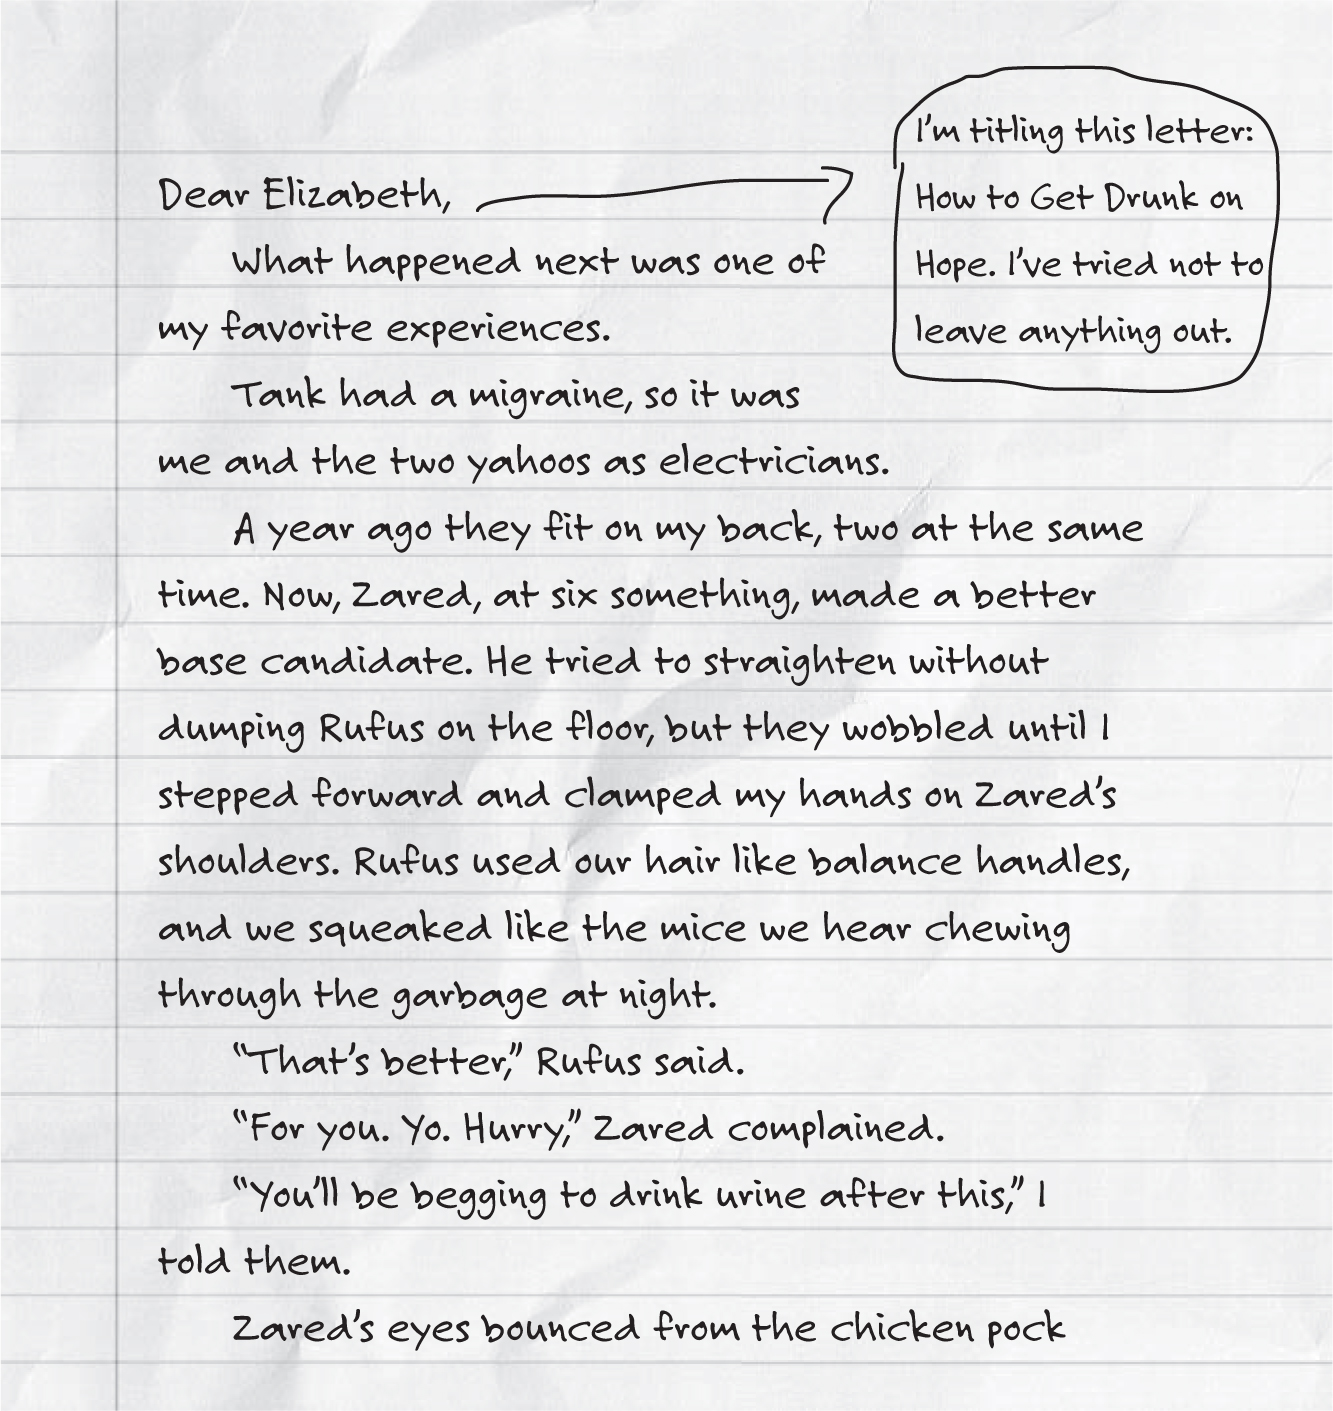 Dear Elizabeth,
I'm titling this letter:
How to Get Drunk on
Hope. I've tried not to
leave anything out.
What happened next was one of
my favorite experiences.
Tank had a migraine, so it was
me and the two yahoos as electricians.
A year ago they fit on my back, two at the same
time. Now, Zared, at six something, made a better
base candidate. He tried to straighten without
dumping Rufus on the floor, but they wobbled until I
stepped forward and clamped my hands on Zared's
shoulders. Rufus used our hair like balance handles,
and we squeaked like the mice we hear chewing
through the garbage at night.
“That's better,” Rufus said.
“For you. Yo. Hurry,” Zared complained.
“You'll be begging to drink urine after this,” I
told them.
Zared's eyes bounced from the chicken pock